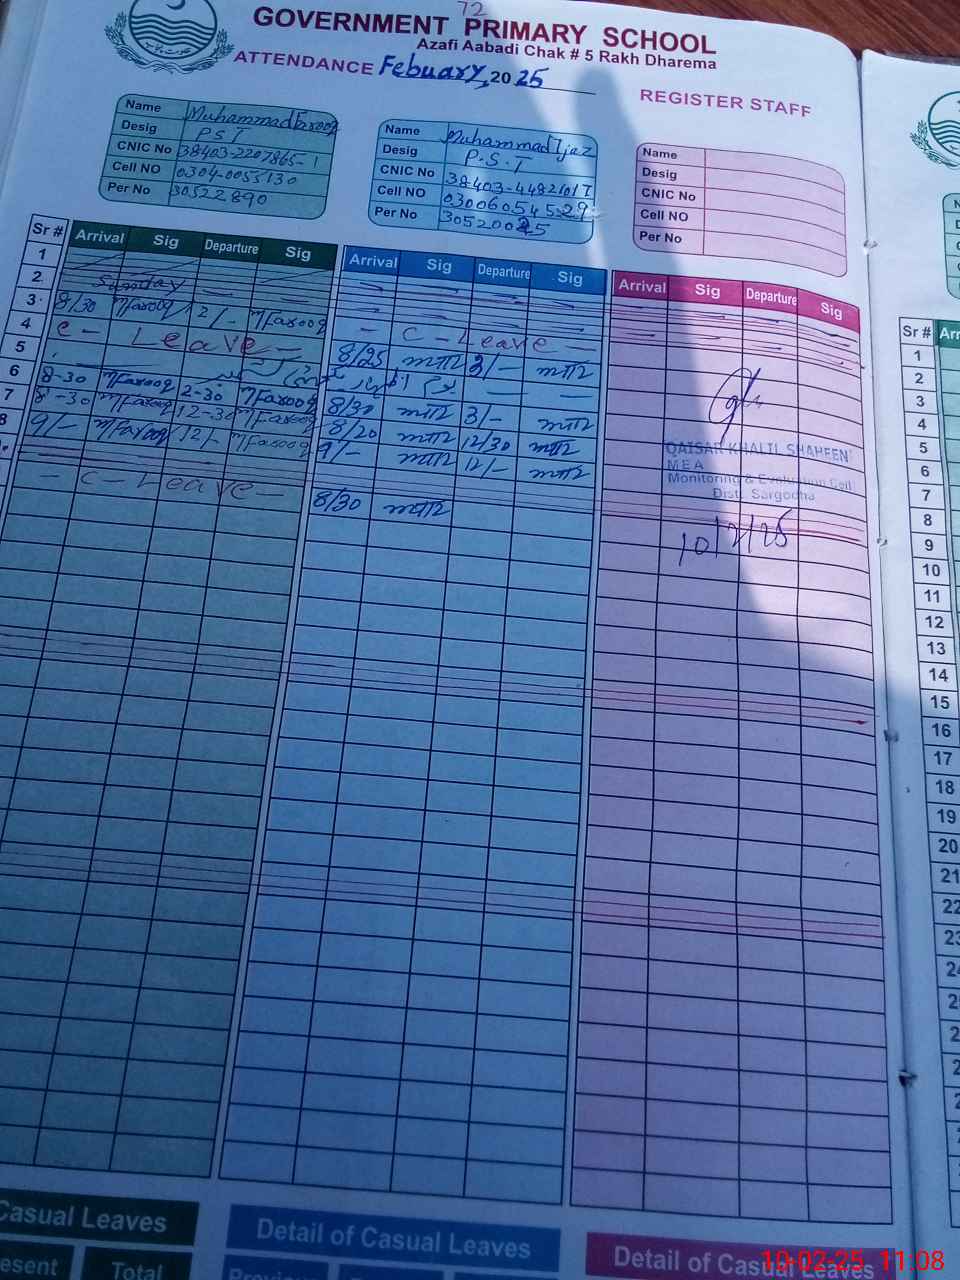 72
GOVERNMENT PRIMARY SCHOOL
Azafi Aabadi Chak # 5 Rakh Dharema
ATTENDANCE Febuary, 2025
REGISTER STAFF
Name Muhammad Farooq
Desig PST
CNIC No 38403-2207865-1
Cell NO 0304-0055130
Per No 30522890
Name Muhammad Ijaz
Desig P.S.T
CNIC No 38403-44821017
Cell NO 03006054529
Per No
Name
Desig
CNIC No
Cell NO
Per No
Sr # Arrival Sig Departure Sig Arrival Sig Departure Sig Arrival Sig Departure Sig
1
2 Sunday
3 8/30 MFarooq 12/- MFarooq - C-Leave -
4 C- Leave - 8/25 3/-
5 یوم
6 8-30 MFarooq 2-30 MFarooq 8/30 3/-
7 8-30 MFarooq 12-30 MFarooq 8/20 12/30
8 9/- MFarooq 12/- MFarooq 9/- 12/-
C-Leave - 8/30
QAISAR KHALIL SHAHEEN
MEA
Monitoring & Evaluation Cell
Distt. Sargodha
10/2/25
Sr # Arr
1
2
3
4
5
6
7
8
9
10
11
12
13
14
15
16
17
18
19
20
21
22
23
Casual Leaves
Detail of Casual Leaves
Detail of Casual Leaves
esent Total
10-02-25 11:08